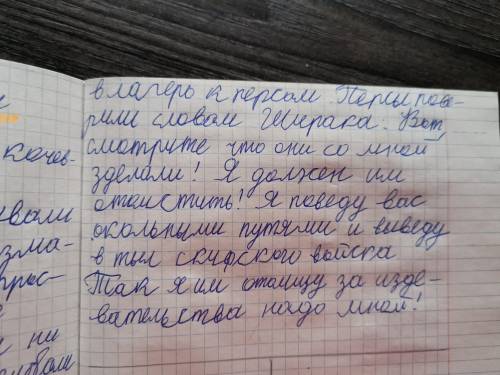 в лагерь к персам. Персы пове-
рили словам Ширака. Вот,
смотрите что они со мной
зделали! Я должен им
отомстить! Я поведу вас
окольными путями и выведу
в тыл скифского войска
Так я им отомщу за изде-
вательства надо мной!
кочев-